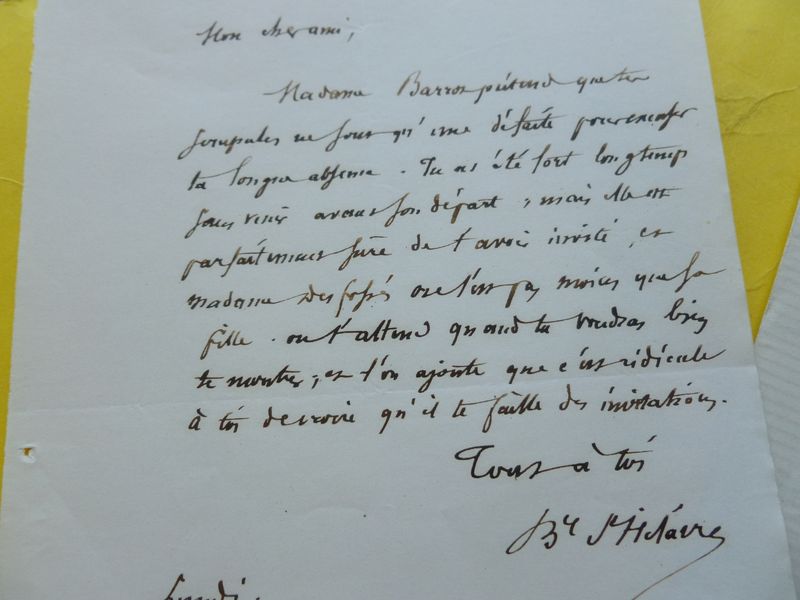 Mon cher ami,
Madame Barros prétend que tes
scrupules ne sont qu'une défaite pour excuser
ta longue absence. Tu as été fort longtemps
sans venir avant son départ ; mais elle est
parfaitement sûre de t'avoir invité, et
madame Desfossés ne l'est pas moins que sa
fille. on t'attend quand tu voudras bien
te montrer ; et l'on ajoute que c'est ridicule
à toi de croire qu'il te faille des invitations.
Tout à toi
By St Hilaire
Lundi.